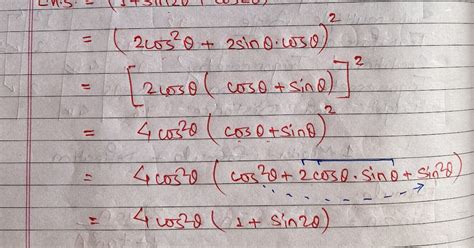 L.H.S. = (1+sin2θ + cos2θ)
= (2cos²θ + 2sinθ·cosθ)²
= [2cosθ (cosθ + sinθ)]²
= 4cos²θ (cosθ + sinθ)²
= 4cos²θ (cos²θ + 2cosθ·sinθ + sin²θ)
= 4cos²θ (1 + sin2θ)